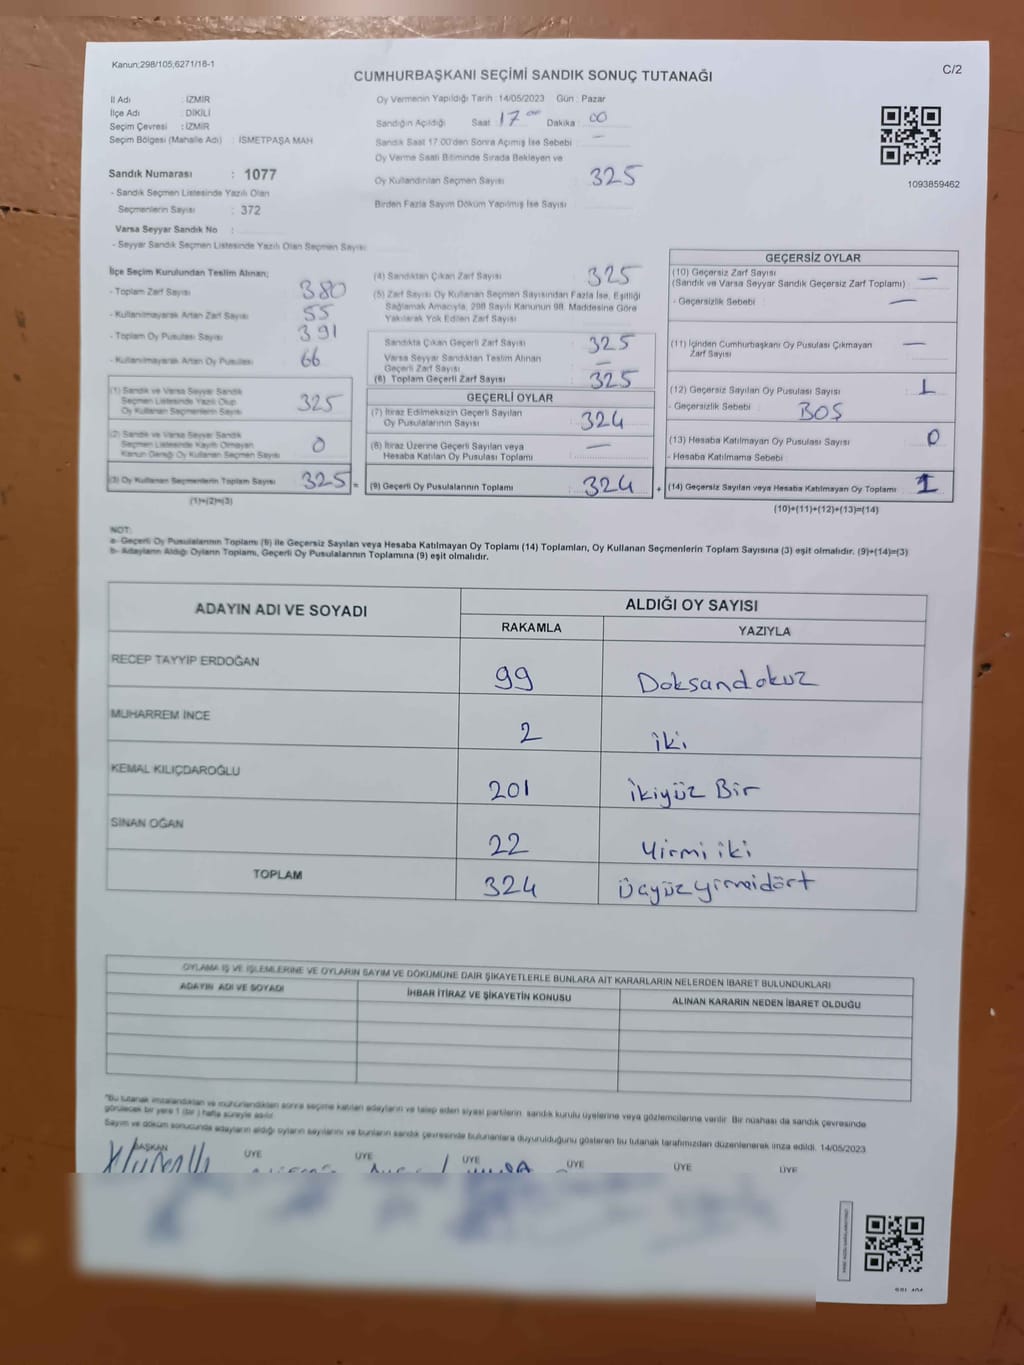 Kanun;298/105,6271/18-1
C/2
CUMHURBAŞKANI SEÇİMİ SANDIK SONUÇ TUTANAĞI
İl Adı : İZMİR
İlçe Adı : DİKİLİ
Seçim Çevresi : İZMİR
Seçim Bölgesi (Mahalle Adı) : İSMETPAŞA MAH
Sandık Numarası : 1077
- Sandık Seçmen Listesinde Yazılı Olan
Seçmenlerin Sayısı : 372
Varsa Seyyar Sandık No :
- Seyyar Sandık Seçmen Listesinde Yazılı Olan Seçmen Sayısı
Oy Vermenin Yapıldığı Tarih : 14/05/2023 Gün : Pazar
Sandığın Açıldığı Saat : 17 Dakika : 00
Sandık Saat 17:00'den Sonra Açımış İse Sebebi : —
Oy Verme Saati Bitiminde Sırada Bekleyen ve
Oy Kullandırılan Seçmen Sayısı : 325
Birden Fazla Sayım Döküm Yapılmış İse Sayısı
1093859462
İlçe Seçim Kurulundan Teslim Alınan;
- Toplam Zarf Sayısı : 380
- Kullanılmayarak Artan Zarf Sayısı : 55
- Toplam Oy Pusulası Sayısı : 391
- Kullanılmayarak Artan Oy Pusulası : 66
(1) Sandık ve Varsa Seyyar Sandık
Seçmen Listesinde Yazılı Olup
Oy Kullanan Seçmenlerin Sayısı : 325
(2) Sandık ve Varsa Seyyar Sandık
Seçmen Listesinde Kayıtlı Olmayan
Kanun Gereği Oy Kullanan Seçmen Sayısı : 0
(3) Oy Kullanan Seçmenlerin Toplam Sayısı : 325 =
(1)+(2)=(3)
(4) Sandıktan Çıkan Zarf Sayısı : 325
(5) Zarf Sayısı Oy Kullanan Seçmen Sayısından Fazla İse, Eşitliği
Sağlamak Amacıyla, 298 Sayılı Kanunun 98. Maddesine Göre
Yakılarak Yok Edilen Zarf Sayısı :
Sandıkta Çıkan Geçerli Zarf Sayısı : 325
Varsa Seyyar Sandıktan Teslim Alınan
Geçerli Zarf Sayısı : —
(6) Toplam Geçerli Zarf Sayısı : 325
GEÇERLİ OYLAR
(7) İtiraz Edilmeksizin Geçerli Sayılan
Oy Pusulalarının Sayısı : 324
(8) İtiraz Üzerine Geçerli Sayılan veya
Hesaba Katılan Oy Pusulası Toplamı : —
(9) Geçerli Oy Pusulalarının Toplamı : 324 +
GEÇERSİZ OYLAR
(10) Geçersiz Zarf Sayısı
(Sandık ve Varsa Seyyar Sandık Geçersiz Zarf Toplamı) : —
- Geçersizlik Sebebi : —
(11) İçinden Cumhurbaşkanı Oy Pusulası Çıkmayan
Zarf Sayısı : —
(12) Geçersiz Sayılan Oy Pusulası Sayısı : 1
- Geçersizlik Sebebi : BOŞ
(13) Hesaba Katılmayan Oy Pusulası Sayısı : 0
- Hesaba Katılmama Sebebi :
(14) Geçersiz Sayılan veya Hesaba Katılmayan Oy Toplamı : 1
(10)+(11)+(12)+(13)=(14)
NOT:
a- Geçerli Oy Pusulalarının Toplamı (9) ile Geçersiz Sayılan veya Hesaba Katılmayan Oy Toplamı (14) Toplamları, Oy Kullanan Seçmenlerin Toplam Sayısına (3) eşit olmalıdır. (9)+(14)=(3)
b- Adayların Aldığı Oyların Toplamı, Geçerli Oy Pusulalarının Toplamına (9) eşit olmalıdır.
ADAYIN ADI VE SOYADI
ALDIĞI OY SAYISI
RAKAMLA YAZIYLA
RECEP TAYYİP ERDOĞAN 99 Doksandokuz
MUHARREM İNCE 2 iki
KEMAL KILIÇDAROĞLU 201 ikiyüz Bir
SİNAN OĞAN 22 Yirmi iki
TOPLAM 324 Üçyüzyirmidört
OYLAMA İŞ VE İŞLEMLERİNE VE OYLARIN SAYIM VE DÖKÜMÜNE DAİR ŞİKAYETLERLE BUNLARA AİT KARARLARIN NELERDEN İBARET BULUNDUKLARI
ADAYIN ADI VE SOYADI İHBAR İTİRAZ VE ŞİKAYETİN KONUSU ALINAN KARARIN NEDEN İBARET OLDUĞU
"Bu tutanak imzalandıktan ve mühürlendikten sonra seçime katılan adayların ve talep eden siyasi partilerin, sandık kurulu üyelerine veya gözlemcilerine verilir. Bir nüshası da sandık çevresinde
görülecek bir yere 1 (bir ) hafta süreyle asılır.
Sayım ve döküm sonucunda adayların aldığı oyların sayılarını ve bunların sandık çevresinde bulunanlara duyurulduğunu gösteren bu tutanak tarafımızdan düzenlenerek imza edildi. 14/05/2023
BAŞKAN ÜYE ÜYE ÜYE ÜYE ÜYE ÜYE